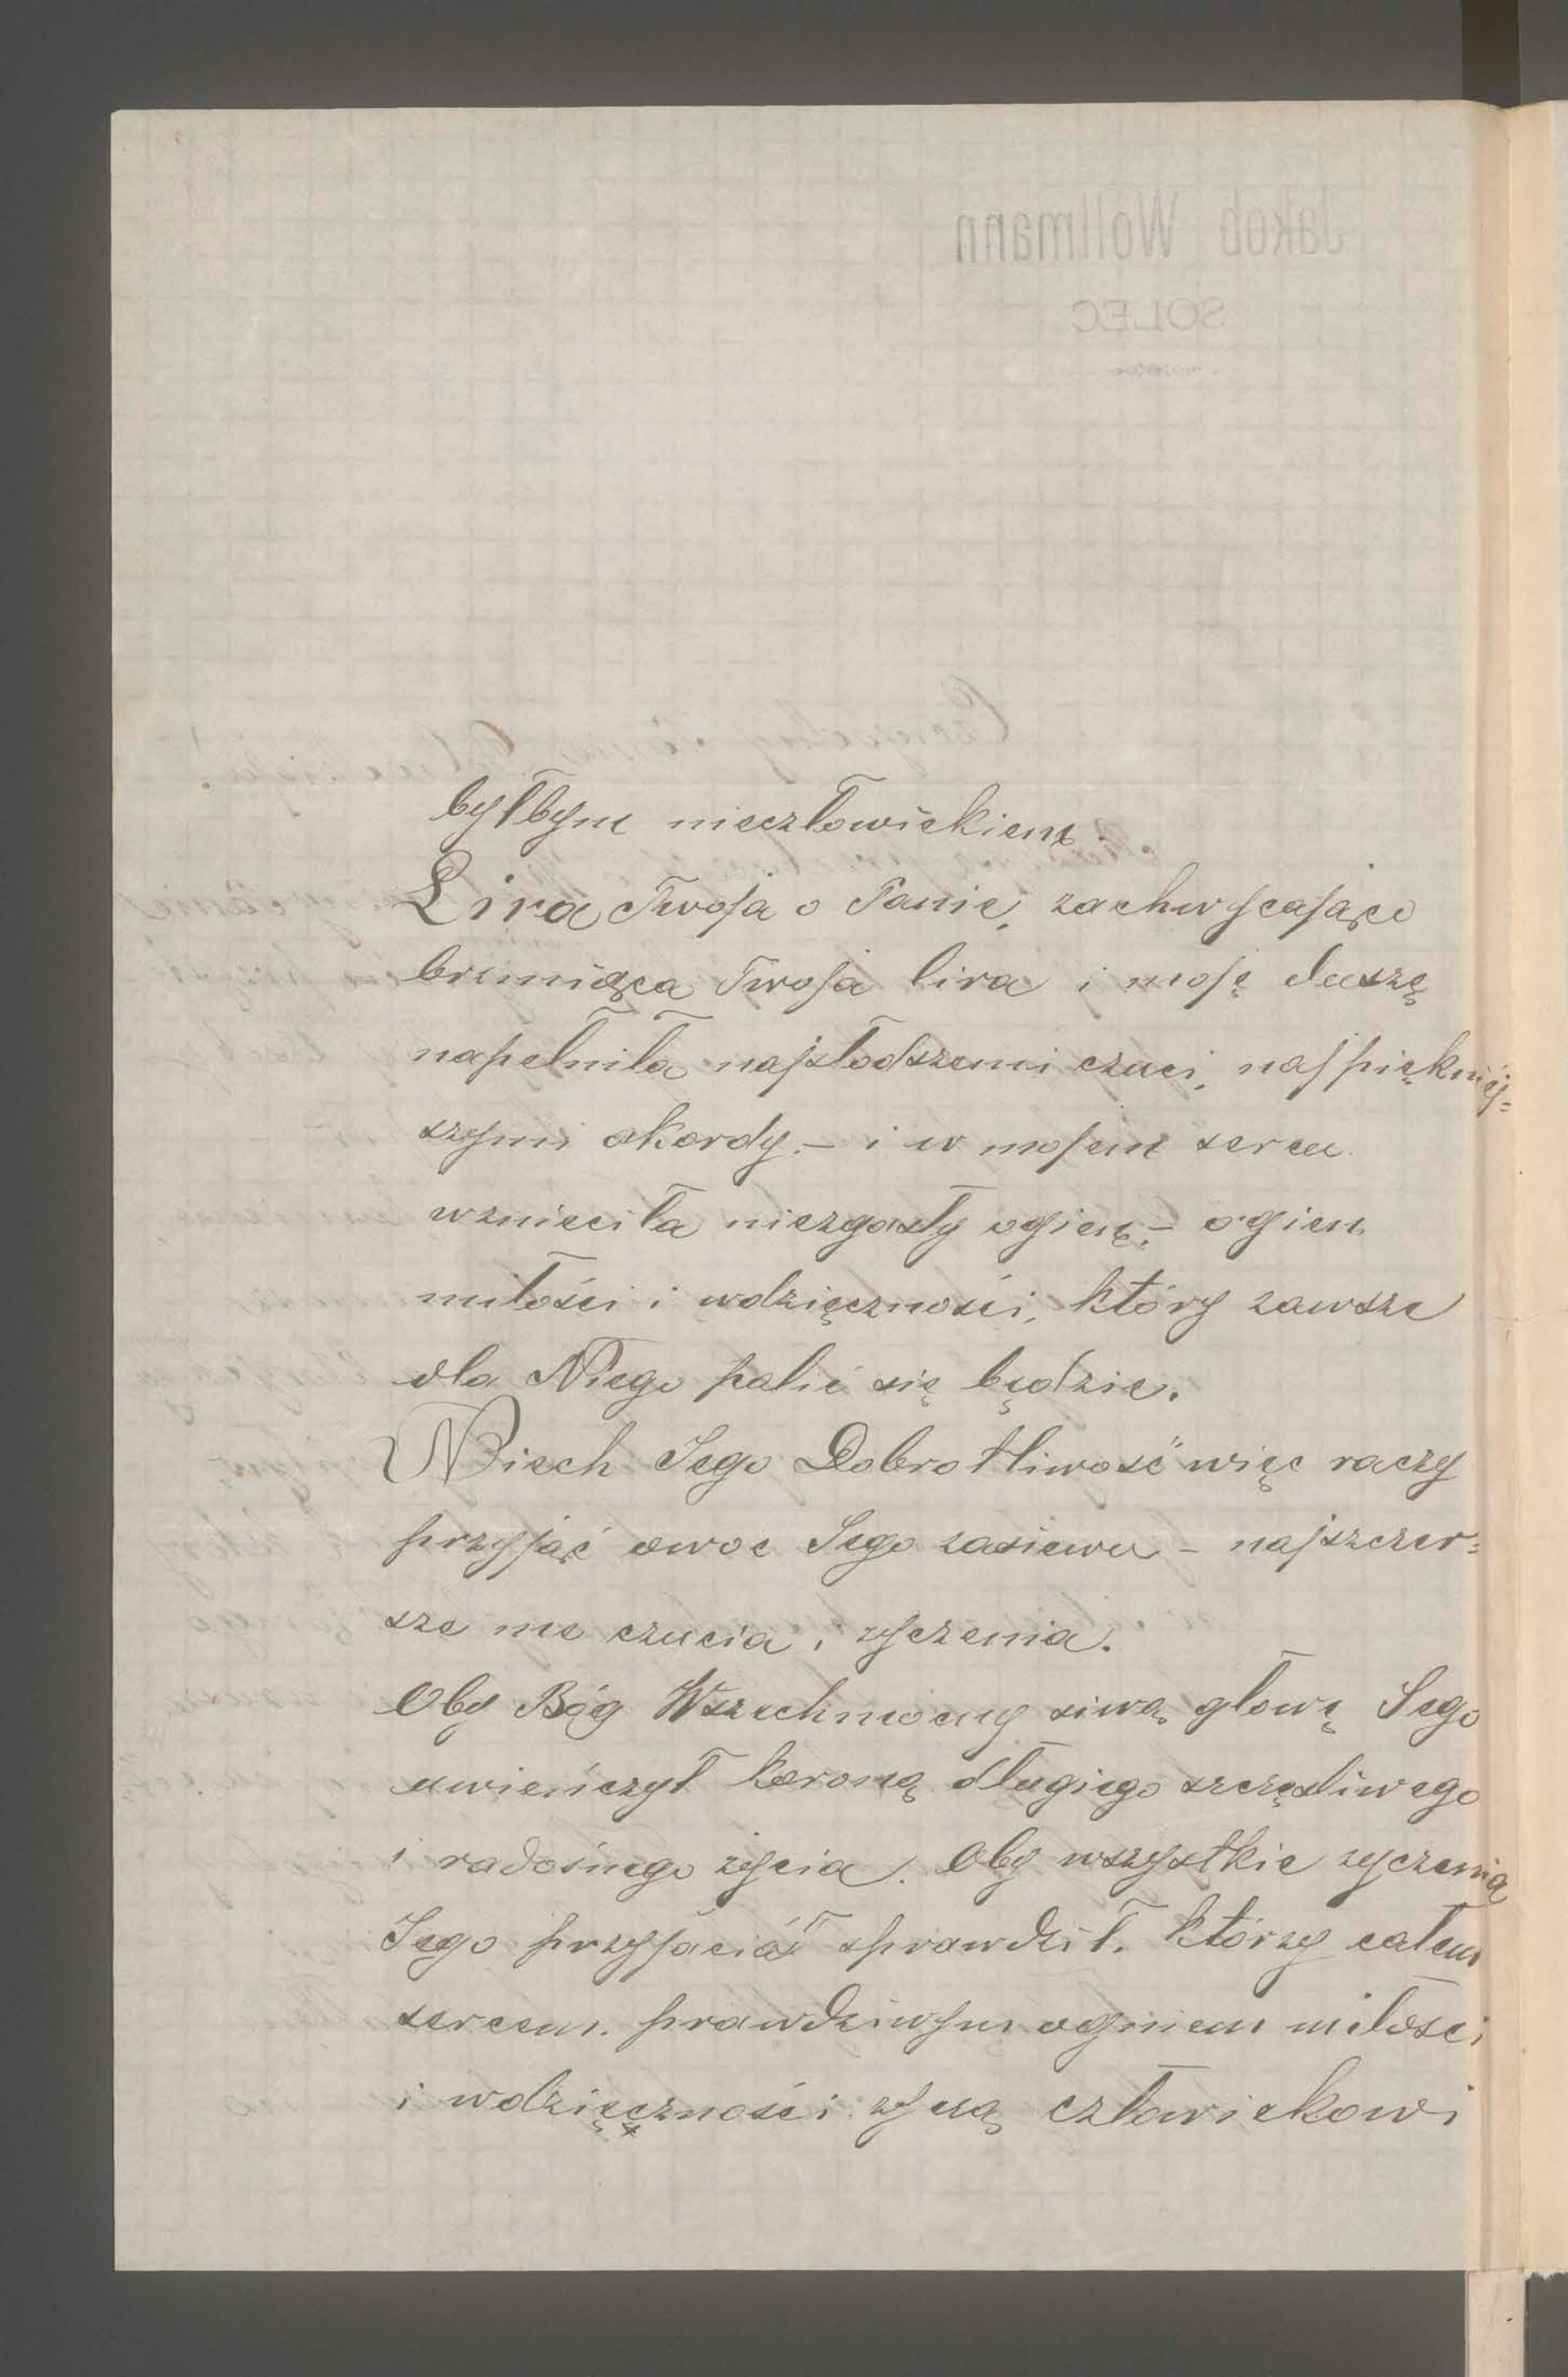 Jakob Wollmann
SOLEC
byłbym nieczłowiekiem.
Lira Twoja o Panie, zachwycająco
brzmiąca Twoja lira i moję duszę
napełniła najsłodszemi czuci, najpiękniej=
szymi akordy. – i w mojem sercu
wznieciła niezgasły ogień, – ogien
miłości i wdzięczności, który zawsze
dla Niego palić się będzie.
Niech Jego Dobrotliwość więc raczy
przyjąć owoc Jego zasiewu – najszczer=
sze me czucia i zyczenia.
Oby Bóg Wszechmocny siwą głowę Jego
uwieńczył koroną długiego szczęsliwego
i radośnego życia. Oby wszystkie zyczenia
Jego przyjaciół sprawdził, którzy całem
sercem, prawdziwym ogniem miłosci
i wdzięczności zyczą człowiekowi